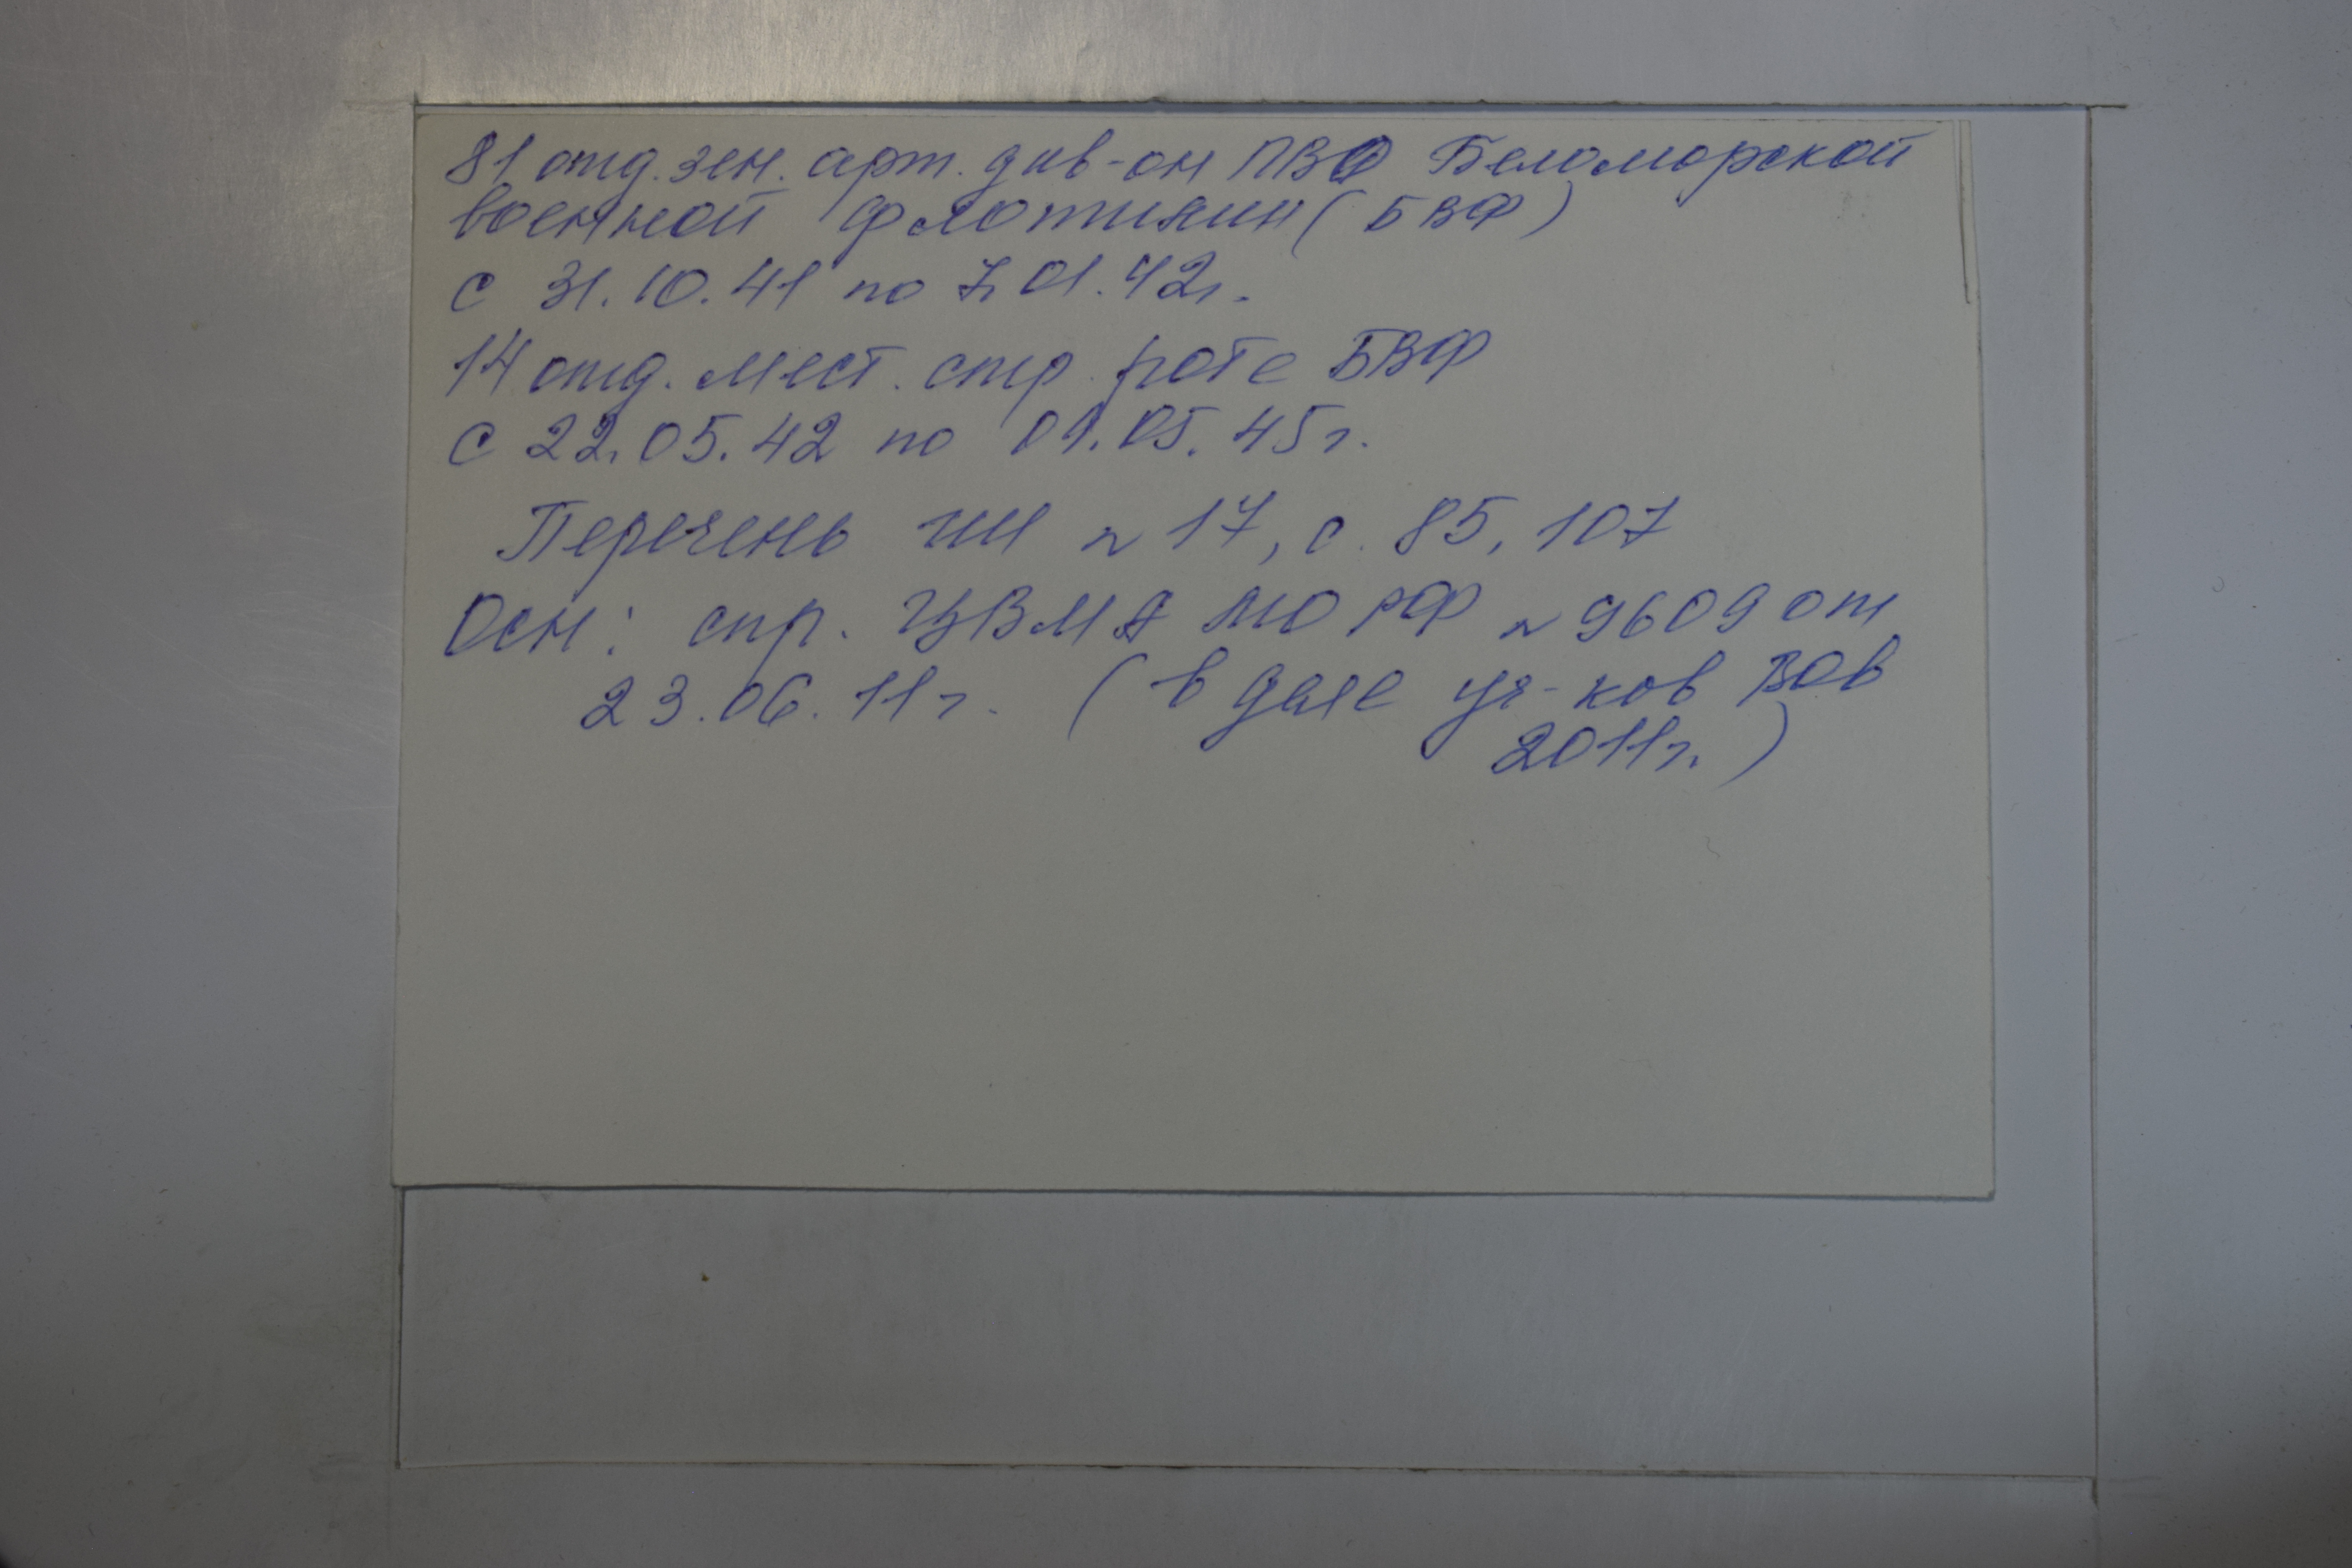 81 отд. зен. арт. див-он ПВО Беломорской
военной флотилии (БВФ)
с 31.10.41 по 7.01.42г.
14 отд. мест. стр. роте БВФ
с 22.05.42 по 09.05.45г.
Перечень ГШ № 17, с. 85, 107
Осн: спр. ЦВМА МО РФ № 9609 от
23.06.11г. (в деле уч-ков ВОв
2011г.)